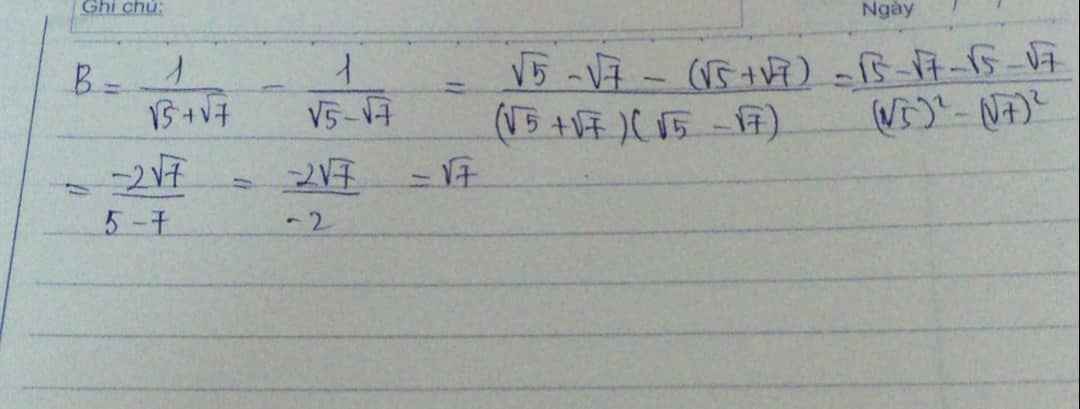 Ghi chú: Ngày / /
B = \frac{1}{\sqrt{5}+\sqrt{7}} - \frac{1}{\sqrt{5}-\sqrt{7}} = \frac{\sqrt{5}-\sqrt{7}-(\sqrt{5}+\sqrt{7})}{(\sqrt{5}+\sqrt{7})(\sqrt{5}-\sqrt{7})} = \frac{\sqrt{5}-\sqrt{7}-\sqrt{5}-\sqrt{7}}{(\sqrt{5})^2-(\sqrt{7})^2}
= \frac{-2\sqrt{7}}{5-7} = \frac{-2\sqrt{7}}{-2} = \sqrt{7}